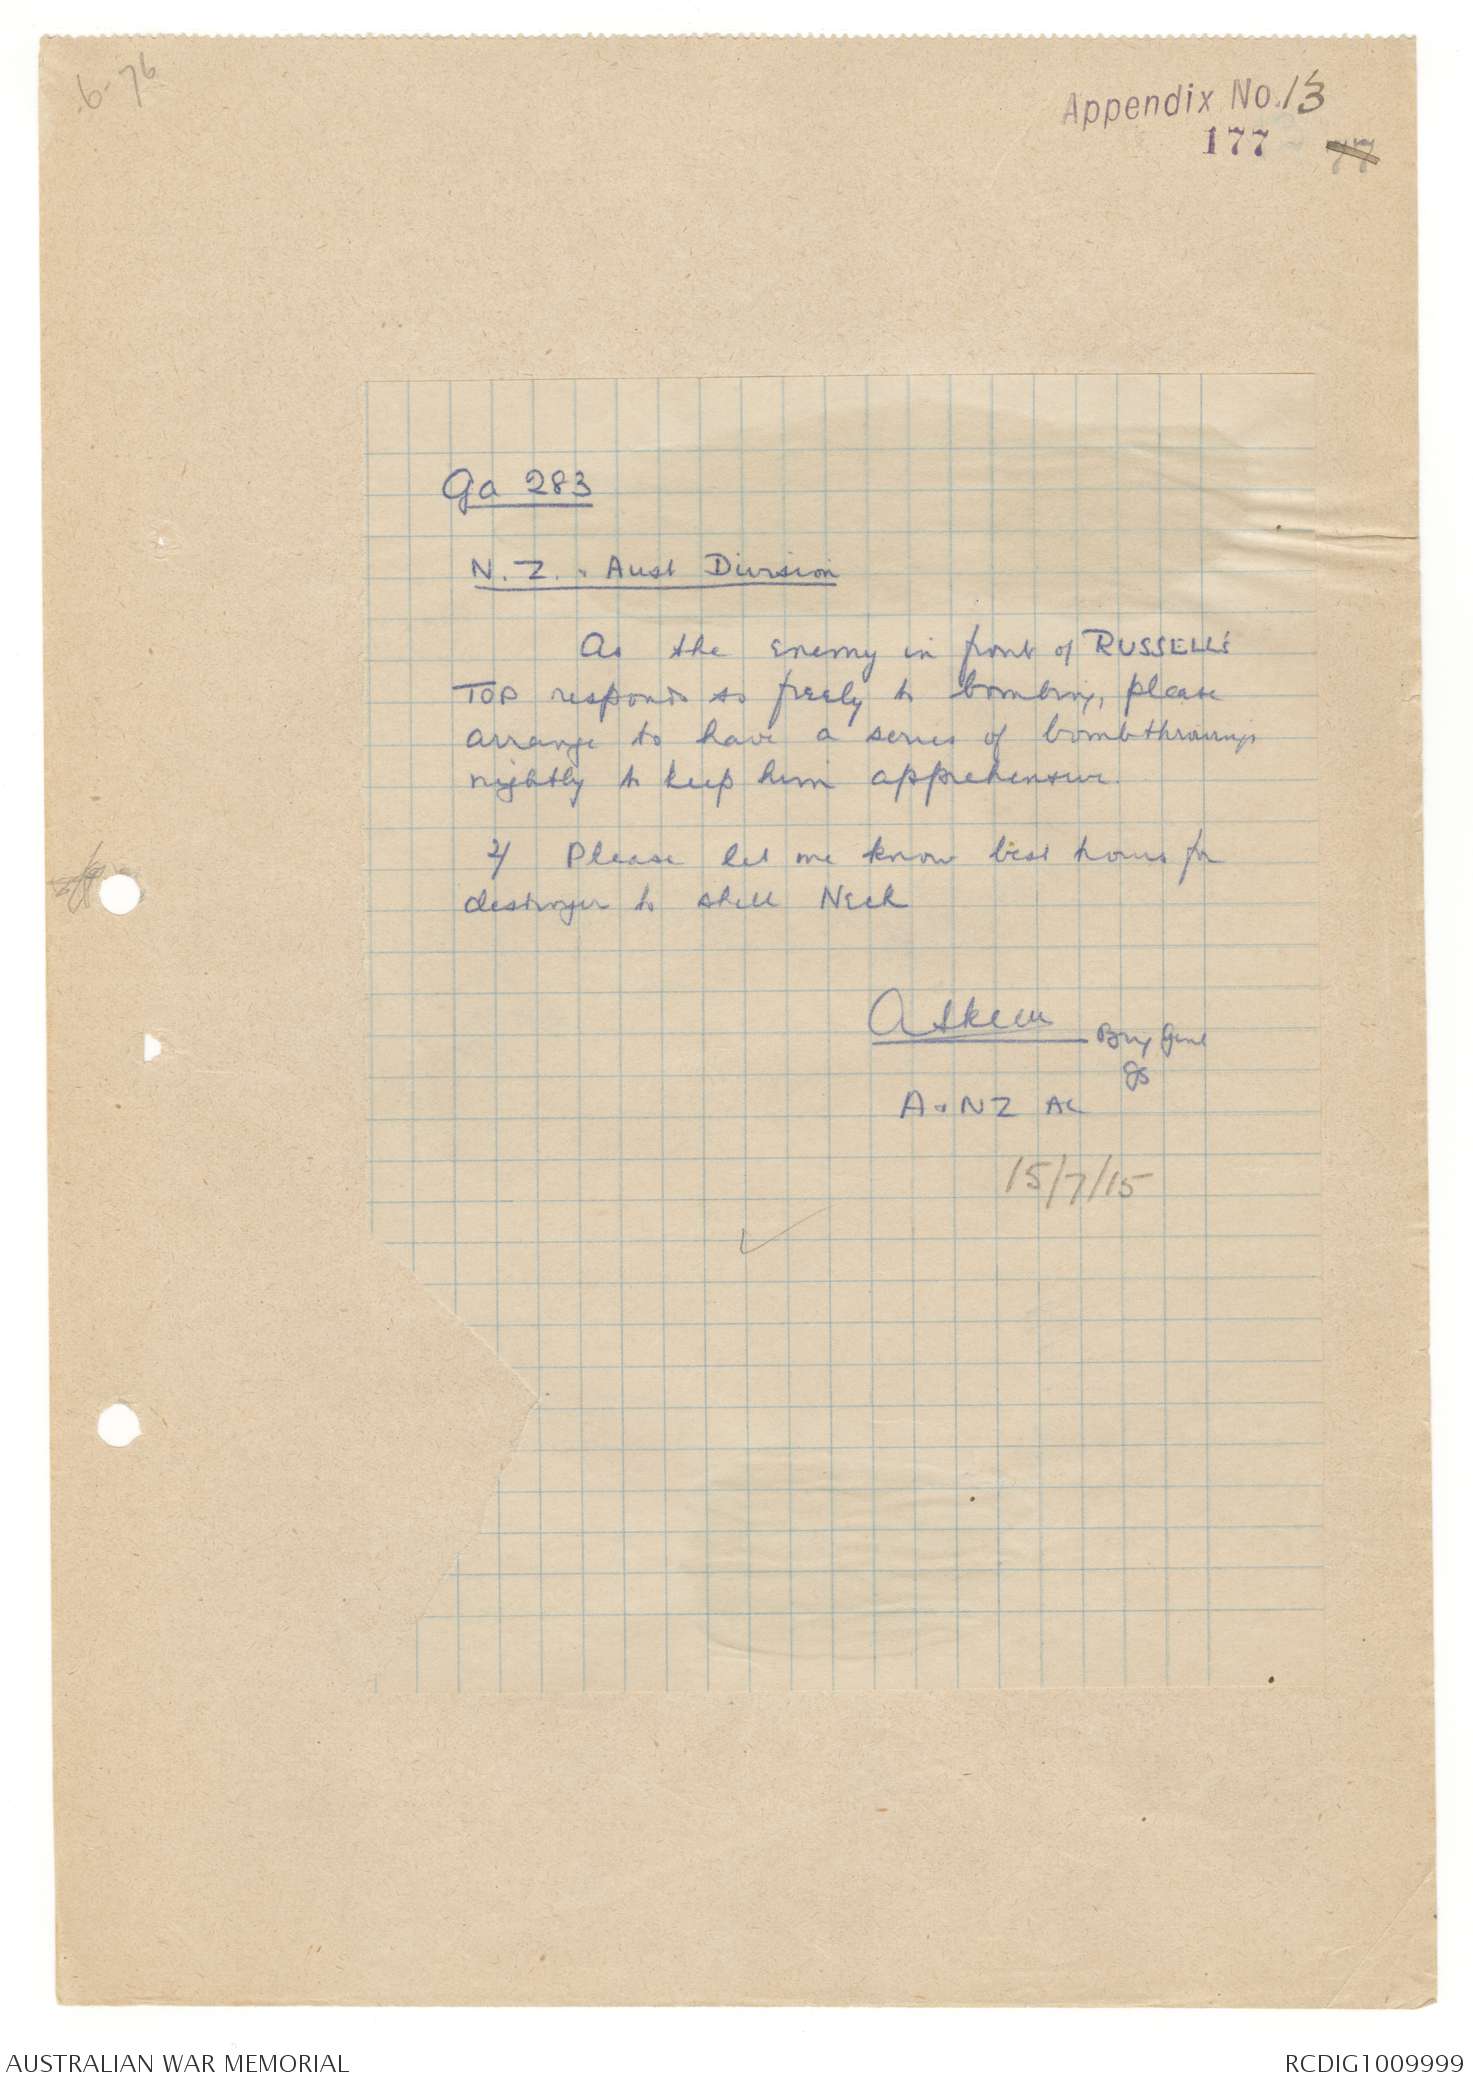 6-76
Appendix No. 13
177 77
Ga 283
N.Z. & Aust Division
As the enemy in front of RUSSELL'S
TOP responds so freely to bombing, please
arrange to have a series of bombthrowings
nightly to keep him apprehensive.
2/ Please let me know best hours for
destroyer to shell Neck
A Skeen Brig Genl
GS
A & NZ AC
15/7/15
AUSTRALIAN WAR MEMORIAL
RCDIG1009999